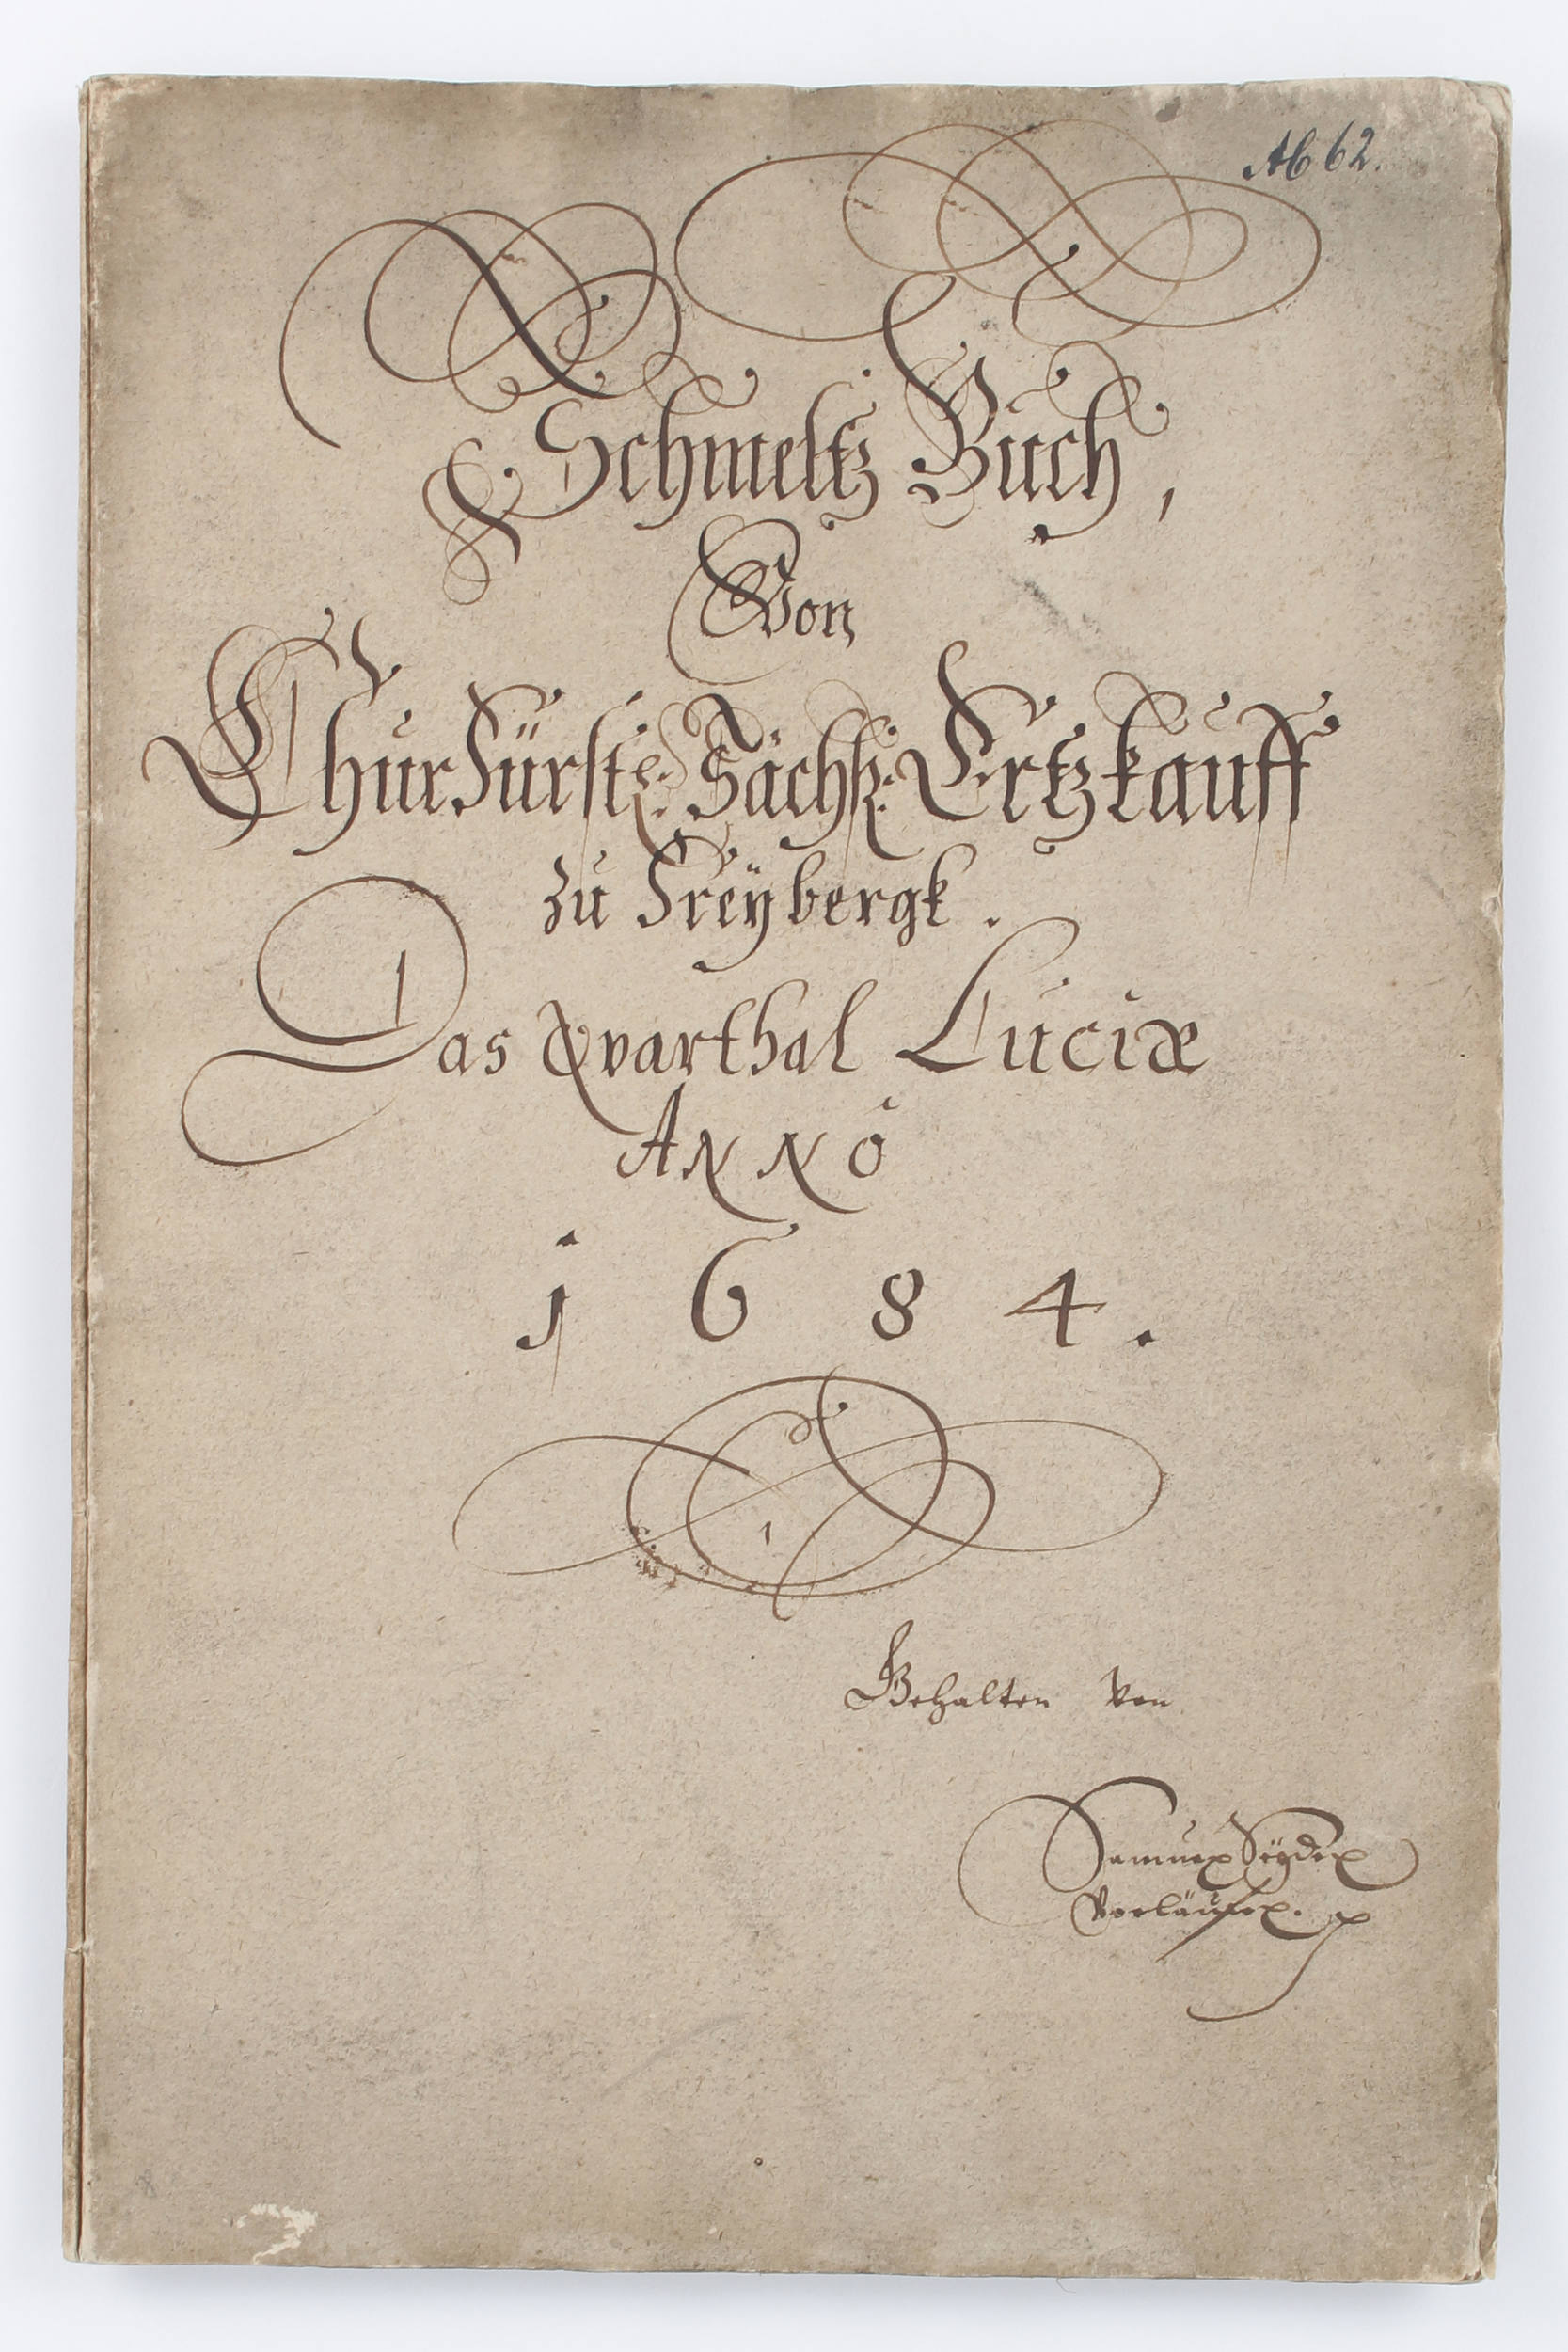 No 62.
Schmeltz Buch,
Von
ChurFürstl: Sächß: Ertzkauff
zu Freÿbergk.
Das Qvarthal Luciæ
ANNO
1684.
Gehalten von
Samuel
Vorläufer.